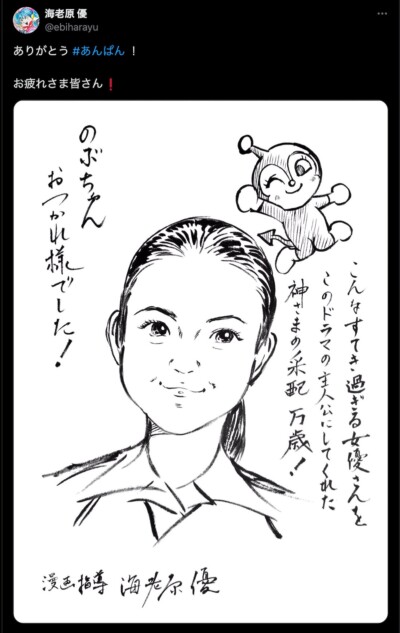 海老原 優
@ebiharayu
ありがとう #あんぱん ！
お疲れさま皆さん❗
のぶちゃん
おつかれ様でした！
こんなすてき過ぎる女優さんを
このドラマの主人公にしてくれた
神さまの采配 万歳！
漫画指導 海老原優